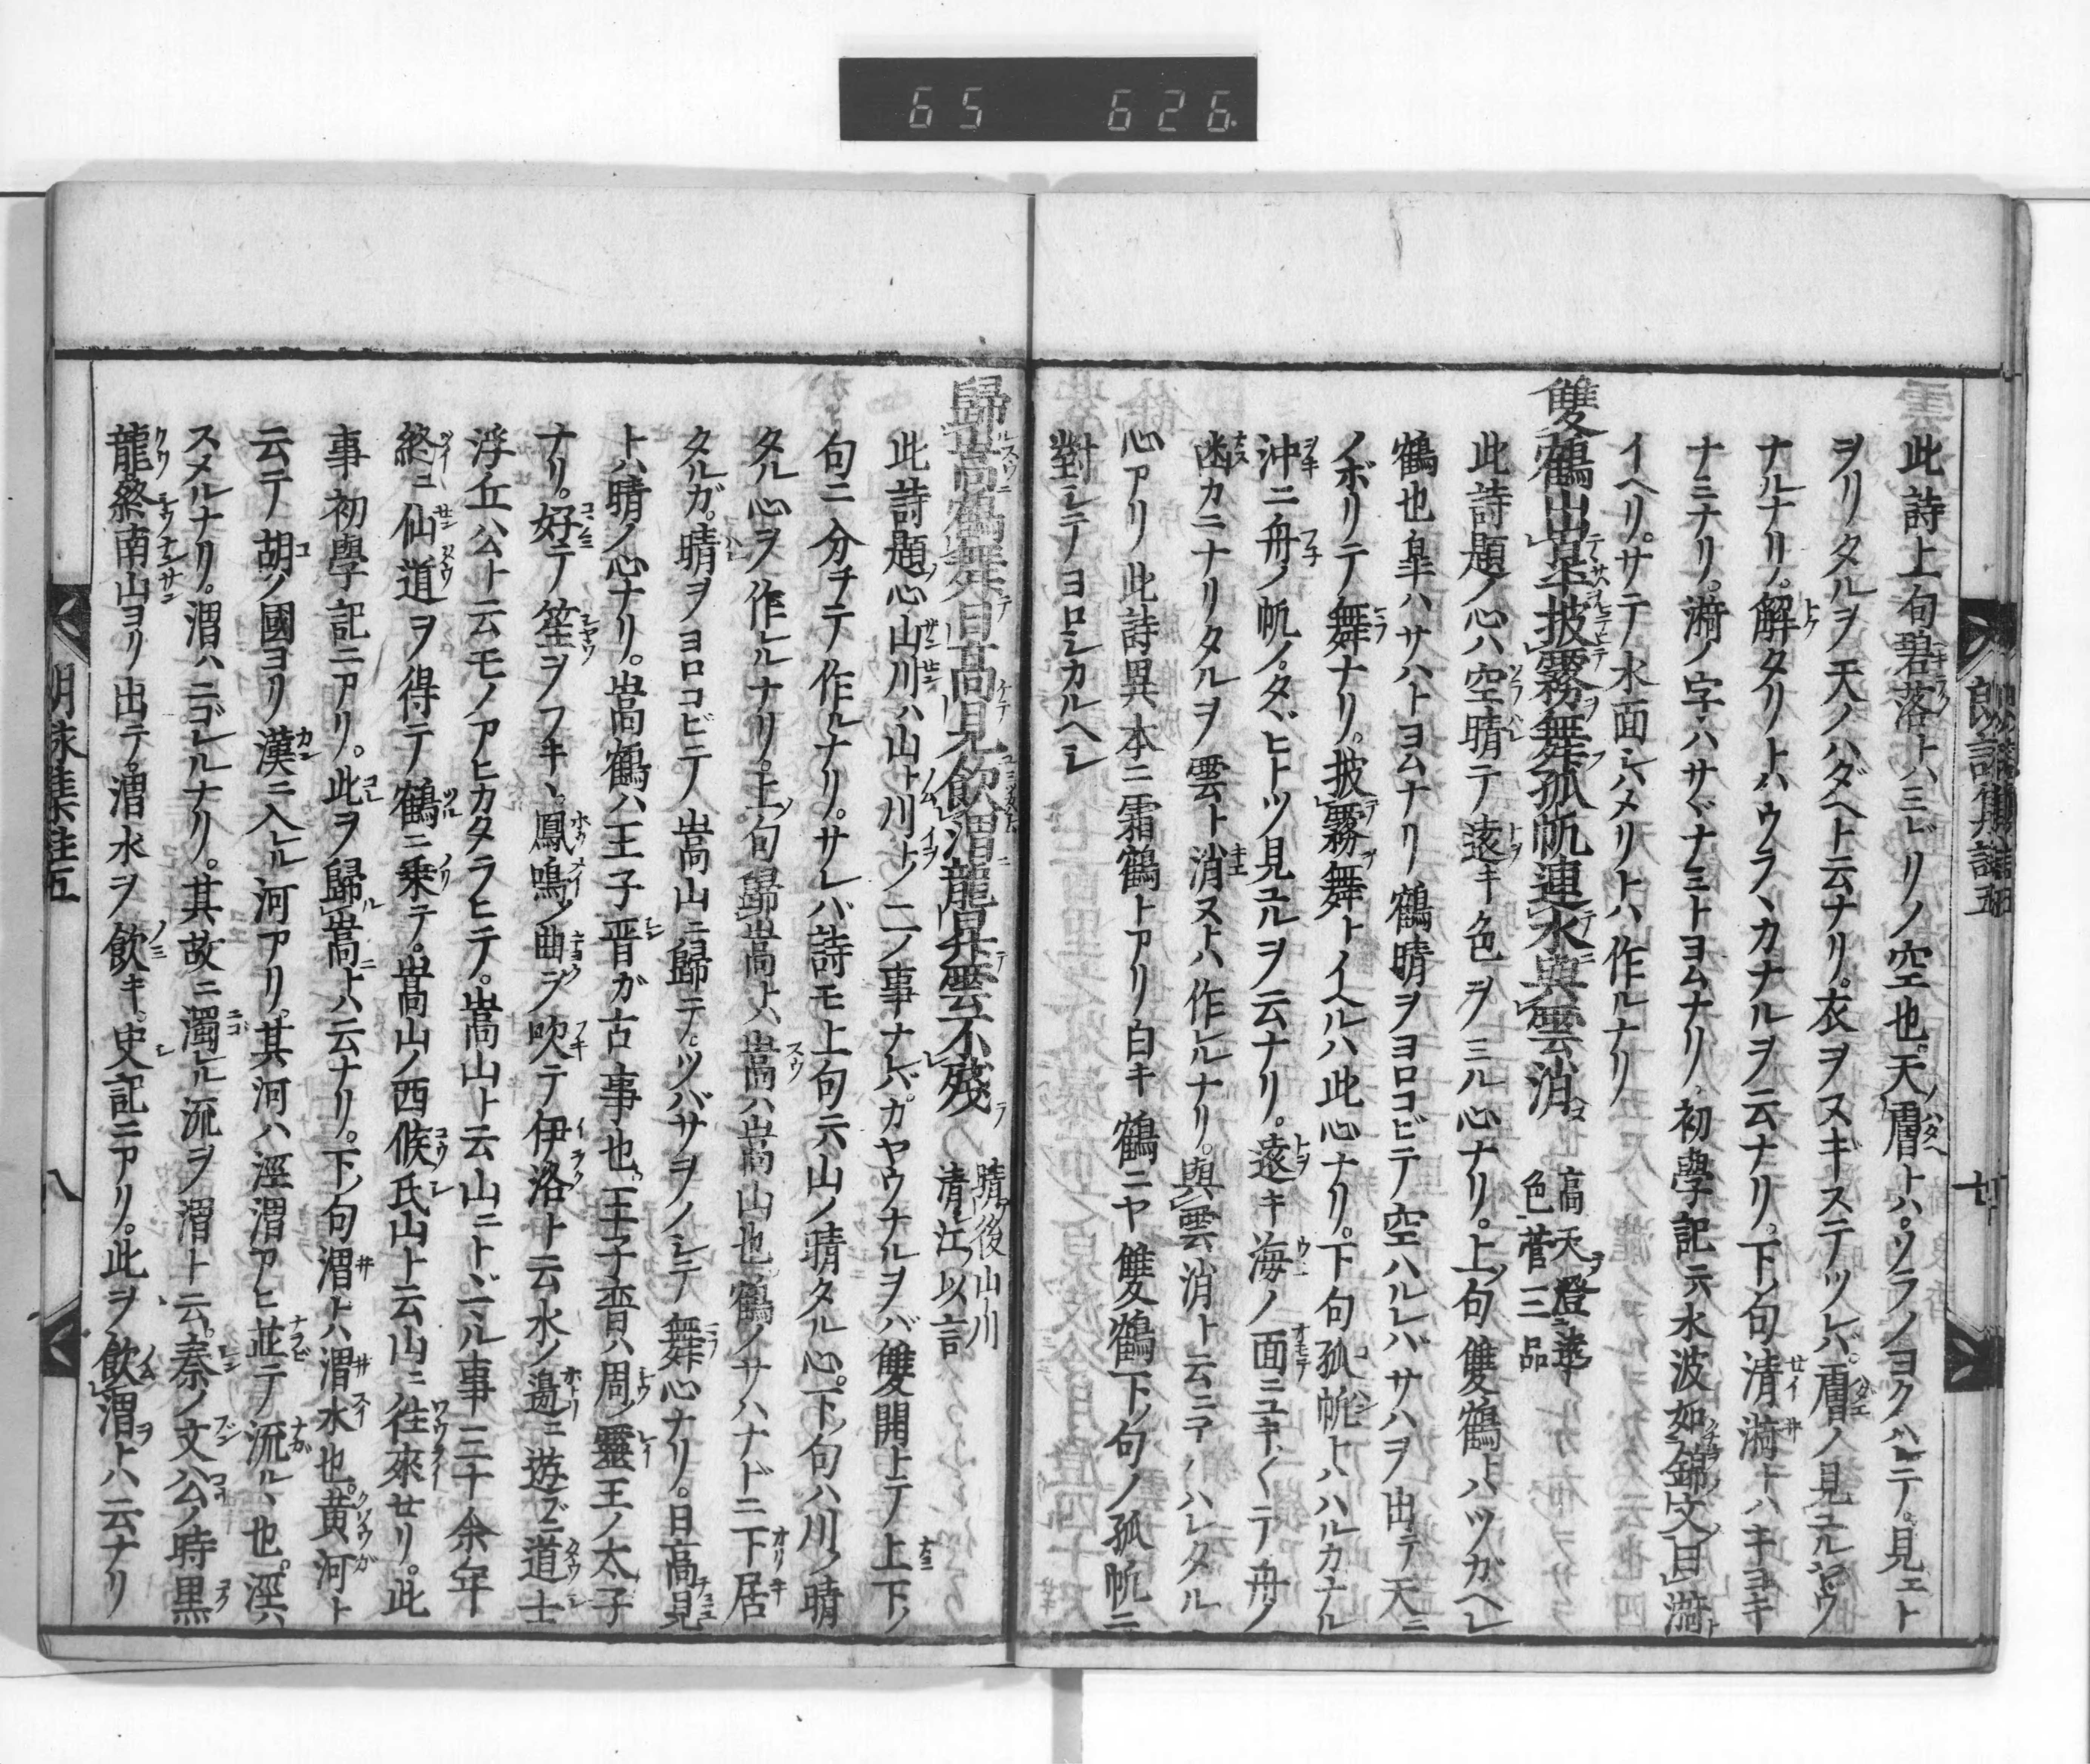 65 626
此詩上句碧落トハミドリノ空也天ノ膚トハソラノヨクハレテ見ヱト
ヲリタルヲ天ノハダヘト云ナリ衣ヲスギステツレバ膚ノ見ユルヤウ
ナルナリ解タリトハウラヽカナルヲ云ナリ下ノ句清漪トハキヨキ
ナミナリ漪ノ字ハサヾナミトヨムナリ初學記云水波如錦文曰漪ト
イヘリサテ水面シハメリトハ作ルナリ
雙鶴出皐披霧舞孤帆連水與雲消 高天澄遠色 菅三品
此詩題ノ心ハ空晴テ遠キ色ヲミル心ナリ上ノ句雙鶴トハツガヘル
鶴也皐ハサハトヨムナリ鶴晴ヲヨロコビテ空ハルレバサハヲ出テ天ニ
ノボリテ舞ナリ披霧舞トイヘルハ此心ナリ下句孤帆トハハルカナル
沖ニ舟ノ帆ノタヾヒトツ見ユルヲ云ナリ遠キ海ノ面ニユキ〳〵テ舟ノ
幽カニナリタルヲ雲ト消ヌトハ作レルナリ與雲消ト云ニテハレタル
心アリ此詩異本ニ霜鶴トアリ白キ鶴ニヤ雙鶴下ノ句ノ孤帆ニ
對シテヨロシカルヘシ
朗詠集註五 七
歸嵩鶴舞日高見飲渭龍昇雲不殘 晴後山川清 江以言
此詩題ノ心山川ハ山ト川トノ二ノ事ナレバカヤウナルヲバ雙開トテ上下ノ
句ニ分チテ作ルナリサレバ詩モ上句ニハ山ノ晴タル心下ノ句ハ川ノ晴
タル心ヲ作レルナリ上ノ句歸嵩トハ嵩ハ嵩山也鶴ノサハナドニ下居
タルガ晴ヲヨロコビテ嵩山ニ歸テツバサヲノシテ舞心ナリ日高見
トハ晴ノ心ナリ嵩鶴ハ王子晋ガ古事也王子晋ハ周ノ靈王ノ太子
ナリ好テ笙ヲフキヽ鳳鳴ノ曲ヲ吹テ伊洛ト云水ノ邊ニ遊ブニ道士
浮丘公ト云モノアヒカタラヒテ嵩山ト云山ニトヾマル事三十余年
終ニ仙道ヲ得テ鶴ニ乗テ嵩山ノ西緱氏山ト云山ニ往來セリ此
事初學記ニアリ此ヲ歸嵩トハ云ナリ下ノ句渭トハ渭水也黄河ト
云テ胡ノ國ヨリ漢ニ入レル河アリ其河ハ涇渭アヒ並テ流ルヽ也涇ハ
スメルナリ渭ハニゴレルナリ其故ニ濁レル流ヲ渭ト云秦ノ文公ノ時黒
龍終南山ヨリ出テ渭水ヲ飲キ史記ニアリ此ヲ飲渭トハ云ナリ
朗詠集註五 八